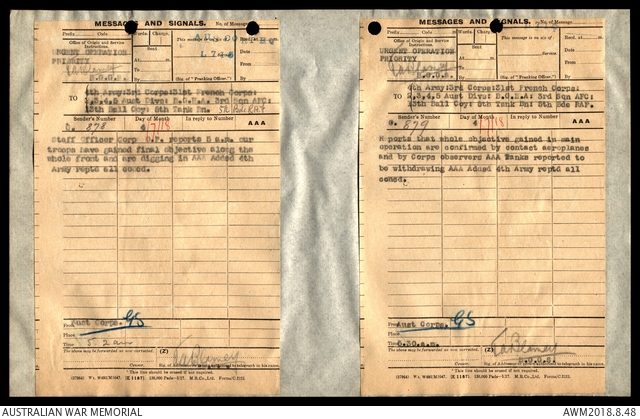 MESSAGES AND SIGNALS. No. of Message
Prefix Code Words. Charge.
Office of Origin and Service Instructions.
URGENT OPERATION
PRIORITY
Sent
At
To
By
This message is on a/c of
(Sig. of "Franking Officer.")
Recd. at
Date
From
By
TO 4th Army: 3rd Corps: 31st French Corps:
2,3,4,5 Aust Divs: B.G.H.A. 3rd Sqn AFC:
13th Ball Coy: 5th Tank Bn. 5th Bde RAF
Sender's Number Day of Month In reply to Number AAA
G. 878 4/7/18
Staff Officer Corp O.P. reports 5 a.m. our
troops have gained final objective along the
whole front and are digging in AAA Added 4th
Army reptd all concd.
From Aust Corps. GS
Place
Time 5.2 am
The above may be forwarded as now corrected. (Z)
T a Blamey
* This line should be erased if not required.
MESSAGES AND SIGNALS. No. of Message
Prefix Code Words. Charge.
Office of Origin and Service Instructions.
URGENT OPERATION
PRIORITY
Sent
At
To
By
This message is on a/c of
(Sig. of "Franking Officer.")
Recd. at
Date
From
By
TO 4th Army: 3rd Corps: 31st French Corps:
2,3,4,5 Aust Divs: B.G.H.A: 3rd Sqn AFC:
13th Ball Coy: 5th Tank Bn: 5th Bde RAF.
Sender's Number Day of Month In reply to Number AAA
G. 879 4/7/18
Reports that whole objective gained in main
operation are confirmed by contact aeroplanes
and by Corps observers AAA Tanks reported to
be withdrawing AAA Added 4th Army reptd all
concd.
From Aust Corps. GS
Place
Time 5.30.a.m.
The above may be forwarded as now corrected. (Z)
T a Blamey
B.G.G.S.
* This line should be erased if not required.
AUSTRALIAN WAR MEMORIAL AWM2018.8.48